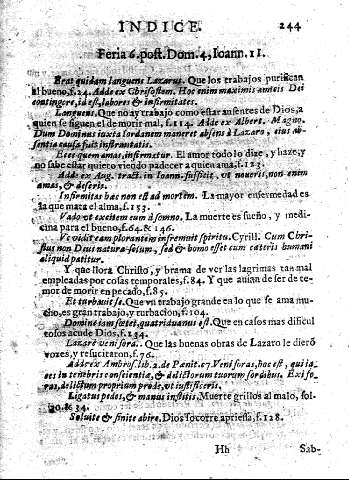 INDICE. 244
Feria 6. post. Dom. 4, Ioann. 11.
Erat quidam languens Lazarus. Que los trabajos purifican
al bueno, f. 24. Adde ex Chrisostom. Hoc enim maximis amicis Dei
contingere, id est, labores & infirmitates.
Languens. Que no ay trabajo como estar ausentes de Dios, a
quien se siguen el de morir mal, f. 114. Adde ex Albert. Magno.
Dum Dominus iuxta Iordanem maneret absens à Lazaro, eius ab-
sentia causa fuit infirmitatis.
Ecce quem amas, infirmatur. El amor todo lo dize, y haze, y
no sabe estar quieto viendo padecer a quien ama, f. 123.
Adde ex Aug. tract. in Ioann. sufficit, ut noveris, non enim
amas, & deseris.
Infirmitas hæc non est ad mortem. La mayor enfermedad es
la que mata el alma, f. 132.
Vado ut excitem eum à somno. La muerte es sueño, y medi-
cina para el bueno, f. 64. & 146.
Ut vidit eam plorantem infremuit spiritu. Cyrill. Cum Chri-
stus non Dei natura solum, sed & homo esset cum cæteris humani
aliquid patitur.
Y que llora Christo, y brama de ver las lagrimas tan mal
empleadas por cosas temporales, f. 84. Y que avian de ser de te-
mor de morir en pecado, f. 85.
Et turbavit se. Que un trabajo grande en lo que se ama mu-
cho, es gran trabajo, y turbacion, f. 104.
Domine iam fœtet, quatriduanus est. Que en casos mas dificul
tosos acude Dios, f. 134.
Lazare veni foras. Que las buenas obras de Lazaro le dierõ
vozes, y resucitaron, f. 76.
Adde ex Ambros. lib. 2. de Pœnit. c 7. Veni foras, hoc est, qui ia-
ces in tenebris conscientiæ, & delictorum tuorum sordibus. Exi fo-
ras, delictum proprium prode, ut iustificeris.
Ligatus pedes, & manus institis. Muerte grillos al malo, fol.
20. & 34.
Solvite & sinite abire. Dios socorre apriessa, f. 128.
Hh Sab-